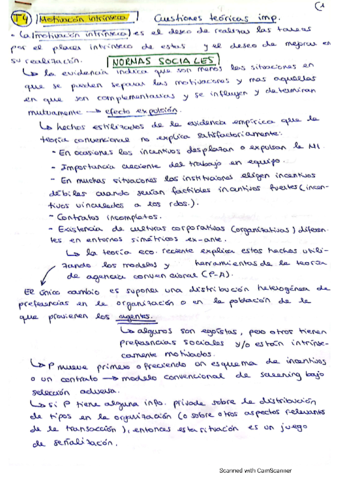 T4 Motivación intrínseca Cuestiones teóricas imp. 1
- La motivación intrínseca es el deseo de realizar las tareas
por el placer intrínseco de estas y el deseo de mejorar es
su realización. NORMAS SOCIALES
↳ la evidencia indica que son menos las situaciones en
que se pueden separar las motivaciones y mas aquellas
en que son complementarias y se influyen y determinan
mutuamente → efecto expulsión.
↳ hechos estilizados de la evidencia empírica que la
teoría convencional no explica satisfactoriamente:
- En ocasiones los incentivos desplazan o expulsan la MI
- Importancia creciente del trabajo en equipo.
- En muchas situaciones las instituciones eligen incentivos
débiles cuando serían factibles incentivos fuertes (incen-
tivos vinculados a los rdos.).
- Contratos incompletos.
- Existencia de culturas corporativas (organizativas) diferen-
tes en entornos simétricos ex-ante.
↳ la teoría eco. recente explica estos hechos utili-
zando los modelos y herramientas de la teoría
de agencia convencional (P-A).
El único cambio es suponer una distribución heterogénea de
preferencias en la organización o en la población de la
que provienen los agentes.
↳ algunos son egoístas, pero otros tienen
preferencias sociales y/o están intrínse-
camente motivados.
↳ P mueve primero ofreciendo un esquema de incentivos
o un contrato → modelo convencional de screening bajo
selección adversa.
↳ si P tiene alguna info. privada sobre la distribución
de tipos en la organización (o sobre otros aspectos relevantes
de la transacción), entonces esta situación es un juego
de señalización.
Scanned with CamScanner